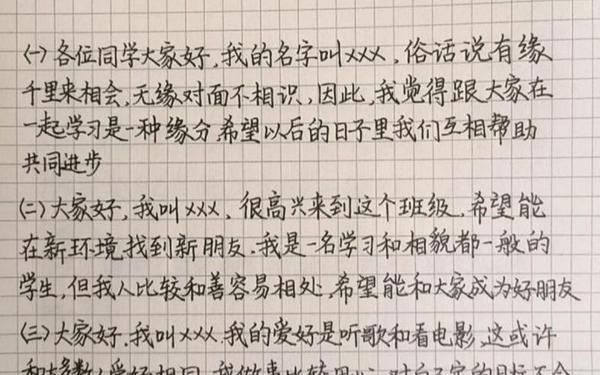 (一)各位同学大家好,我的名字叫xxx,俗话说有缘
千里来相会,无缘对面不相识,因此,我觉得跟大家在
一起学习是一种缘分,希望以后的日子里我们互相帮助
共同进步
(二)大家好,我叫xxx,很高兴来到这个班级.希望能
在新环境找到新朋友.我是一名学习和相貌都一般的
学生,但我人比较和善容易相处,希望能和大家成为好朋友
(三)大家好.我叫xxx.我的爱好是听歌和看电影,这或许
和大多数人爱好相同.我做事比较用心,对自己定的目标不会